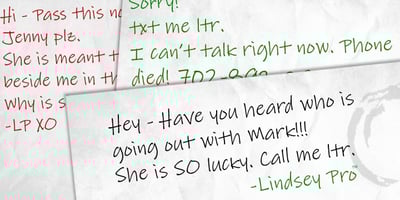 Hi - Pass this no
Jenny plz.
She is meant t
beside me in th
Why is s
-LP XO
Sorry!
txt me ltr.
I can't talk right now. Phone
died! 702
Hey - Have you heard who is
going out with Mark!!!
She is SO lucky. Call me ltr.
-Lindsey Pro